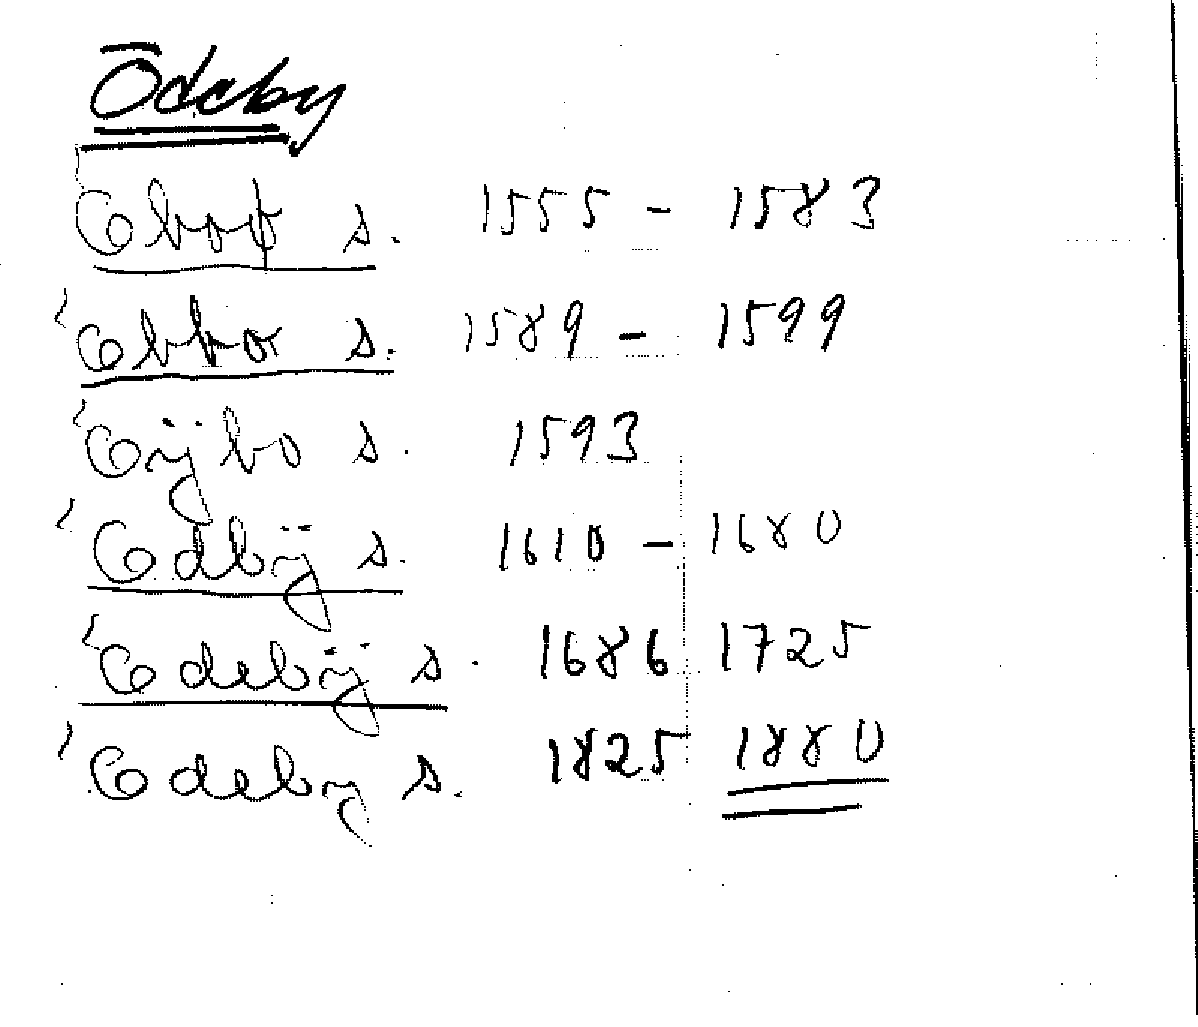 Ödeby
s. 1555 - 1583
Öbbo s. 1589 - 1599
Öijbo s. 1593
Ödbÿ s. 1610 - 1680
Ödebÿ s. 1686 1725
Ödeby s. 1825 1880